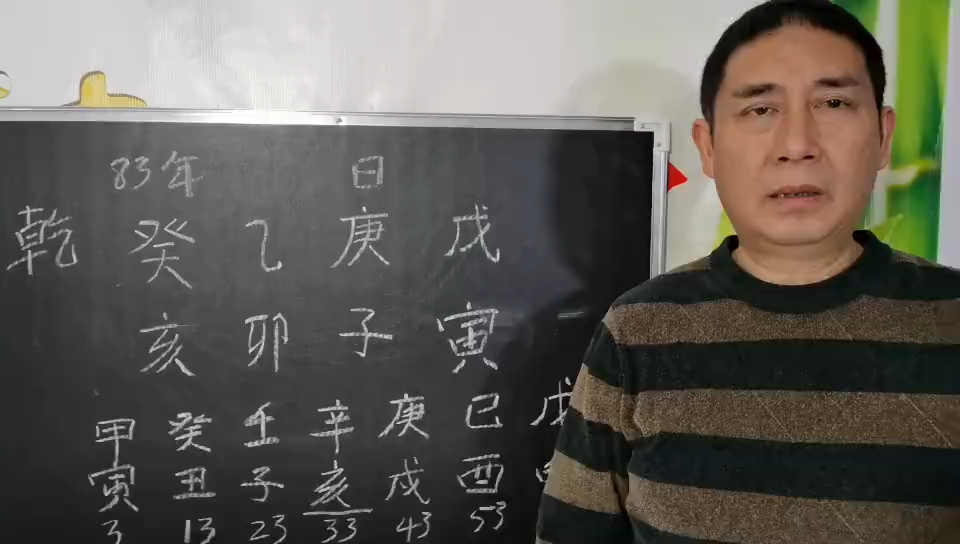 83年 日
乾 癸 乙 庚 戊
亥 卯 子 寅
甲 癸 壬 辛 庚 己 戊
寅 丑 子 亥 戌 酉
3 13 23 33 43 53